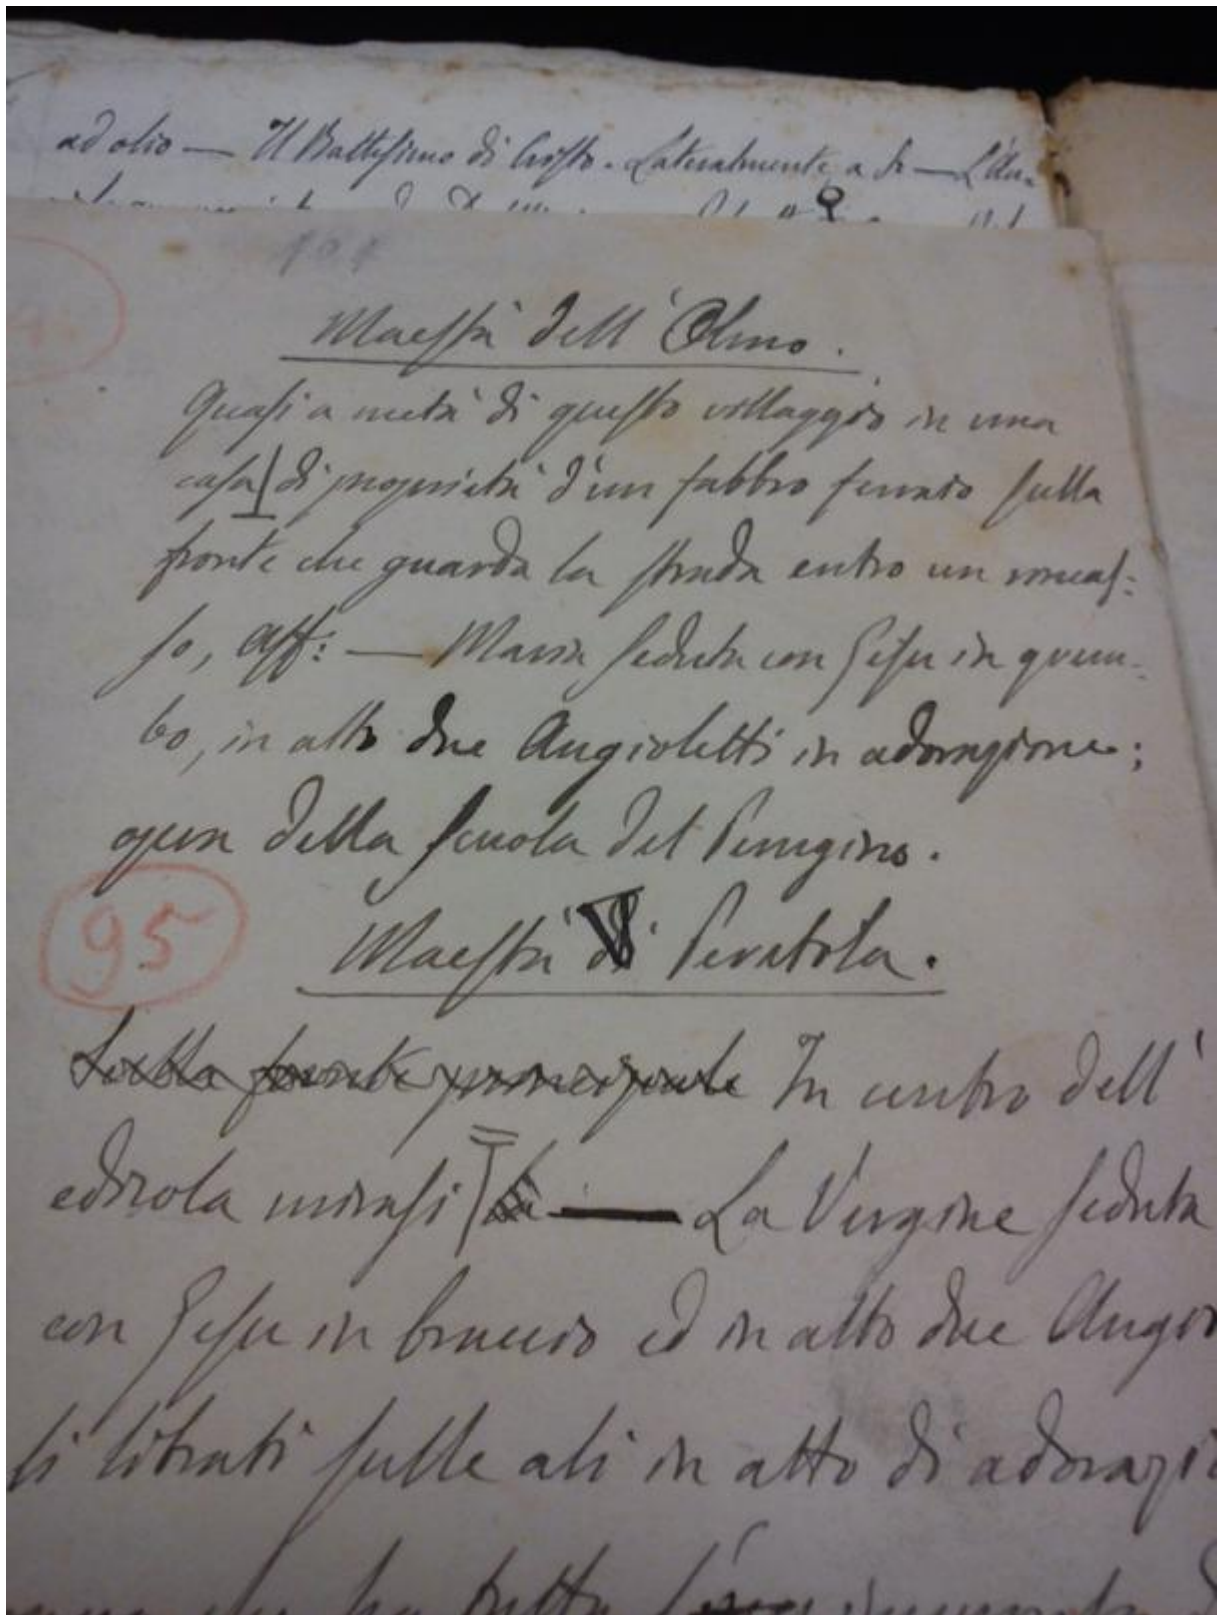 ad olio — Il Battesimo di Cristo. Lateralmente a Sr — L'An-
101
Maestà dell' Olmo.
Quasi a metà di questo villaggio in una
casa) di proprietà d'un fabbro ferraio sulla
fronte che guarda la strada entro un rincas:
so, aff: — Maria seduta con Gesu in grem-
bo, in alto due Angioletti in adorazione;
opera della scuola del Perugino.
95
Maestà di Peratola.
Sulla fronte principale In centro dell'
edicola mirasi) — La Vergine seduta
con Gesu in braccio ed in alto due Angio
li librati sulle ali in atto di adorazi
che ha tutta